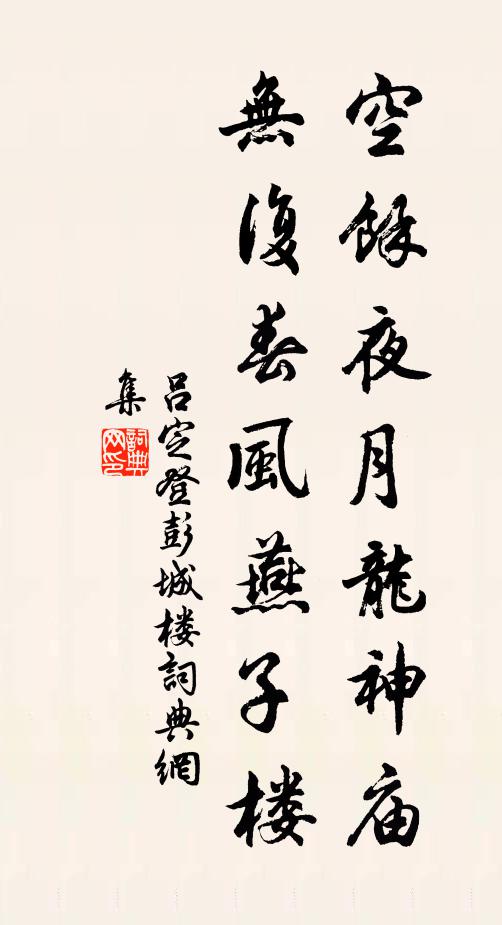 空餘夜月龍神庙
無復春風燕子楼
吕定登彭城楼詞典網
集
詞典
网印